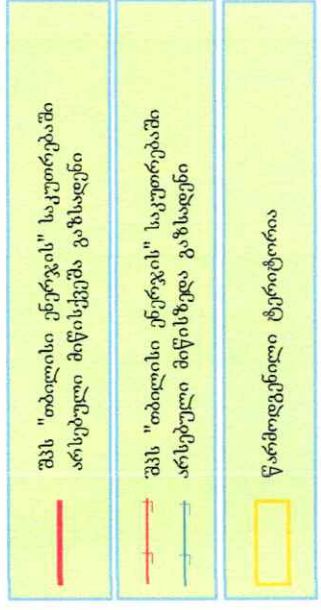 შპს "თბილისი ენერჯის" საკუთრებაში
არსებული მიწისქვეშა გაზსადენი
შპს "თბილისი ენერჯის" საკუთრებაში
არსებული მიწისზედა გაზსადენი
წარმოდგენილი ტერიტორია